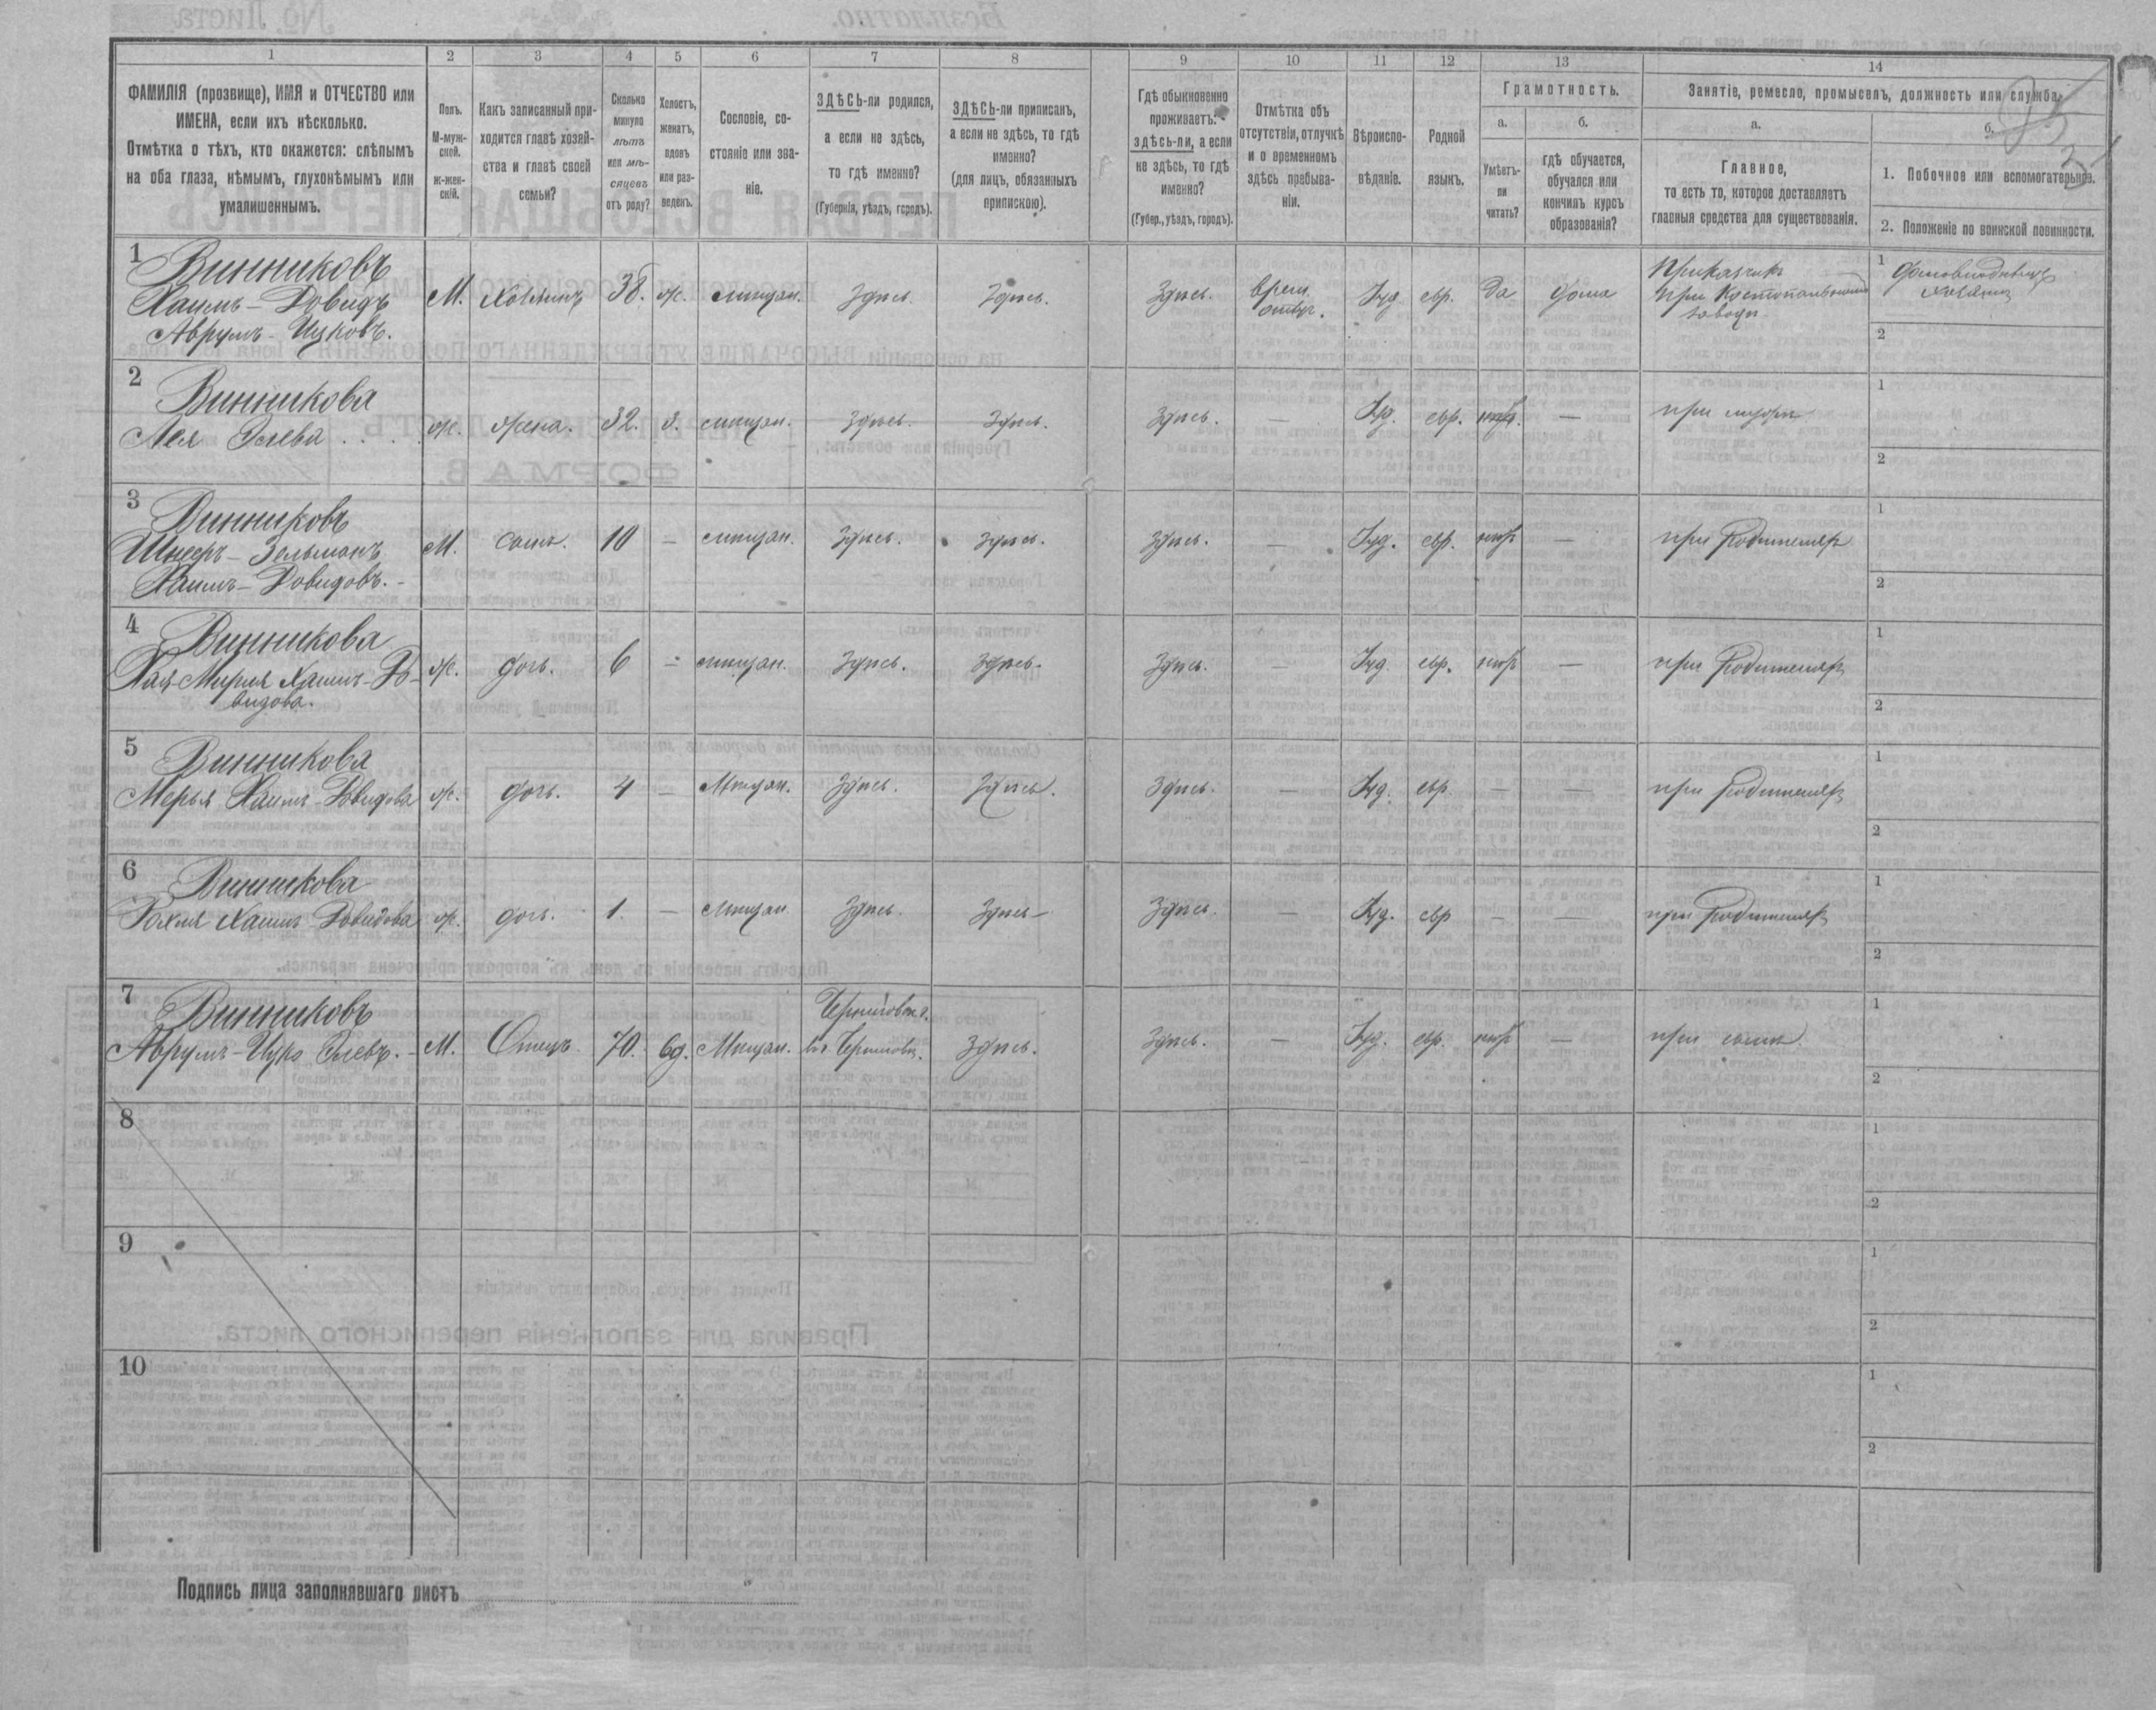 1 2 3 4 5 6 7 8 9 10 11 12 13 14
ФАМИЛІЯ (прозвище), ИМЯ и ОТЧЕСТВО или
ИМЕНА, если ихъ нѣсколько.
Отмѣтка о тѣхъ, кто окажется: слѣпымъ
на оба глаза, нѣмымъ, глухонѣмымъ или
умалишеннымъ.
Полъ.
М-муж-
ской.
Ж-жен-
скій.
Какъ записанный при-
ходится главѣ хозяй-
ства и главѣ своей
семьи?
Сколько
минуло
лѣтъ
или мѣ-
сяцевъ
отъ роду?
Холостъ,
женатъ,
вдовъ
или раз-
веденъ.
Сословіе, со-
стояніе или зва-
ніе.
ЗДѢСЬ-ли родился,
а если не здѣсь,
то гдѣ именно?
(Губернія, уѣздъ, городъ).
ЗДѢСЬ-ли приписанъ,
а если не здѣсь, то гдѣ
именно?
(для лицъ, обязанныхъ
припискою).
Гдѣ обыкновенно
проживаетъ:
здѣсь-ли, а если
не здѣсь, то гдѣ
именно?
(Губер., уѣздъ, городъ).
Отмѣтка объ
отсутствіи, отлучкѣ
и о временномъ
здѣсь пребыва-
ніи.
Вѣроиспо-
вѣданіе.
Родной
языкъ.
Грамотность.
а.
Умѣетъ-
ли
читать?
б.
гдѣ обучается,
обучался или
кончилъ курсъ
образованія?
Занятіе, ремесло, промыселъ, должность или служба.
а.
Главное,
то есть то, которое доставляетъ
главныя средства для существованія.
б.
1. Побочное или вспомогательное.
2. Положеніе по воинской повинности.
1 Винниковъ
Хаимъ-Довидъ
Аврумъ-Ицковъ.
М. Хозяинъ 38. ж. мѣщан. Здѣсь. Здѣсь. Здѣсь. врем. отлуч. Іуд. евр. да дома
Приказчикъ
при Костопальномъ
заводѣ
1 Домовладѣлецъ
хозяинъ
2
2 Винникова
Лея Элева
ж. жена. 32. з. мѣщан. здѣсь. здѣсь. здѣсь. — Іуд. евр. нѣтъ. — при мужѣ
1
2
3 Винниковъ
Шнееръ-Зельманъ
Хаимъ-Довидовъ.
М. сынъ. 10 — мѣщан. здѣсь. здѣсь. здѣсь. — Іуд. евр. нѣтъ — при родителяхъ
1
2
4 Винникова
Хая-Мирля Хаимъ-До-
видова.
ж. дочь. 6 — мѣщан. здѣсь. здѣсь. здѣсь. — Іуд. евр. нѣтъ — при родителяхъ
1
2
5 Винникова
Мерья Хаимъ-Довидова
ж. дочь. 4 — мѣщан. здѣсь. здѣсь. здѣсь. — Іуд. евр. — — при родителяхъ
1
2
6 Винникова
Рохля Хаимъ-Довидова
ж. дочь. 1. — мѣщан. здѣсь. здѣсь — здѣсь. — Іуд. евр — — при родителяхъ
1
2
7 Винниковъ
Аврумъ-Ицко Элевъ.
М. Отецъ 70. вд. Мѣщан. здѣсь. здѣсь. — Іуд. евр. нѣтъ — при сынѣ
1
2
8
1
2
9
1
2
10
1
2
Подпись лица заполнявшаго листъ